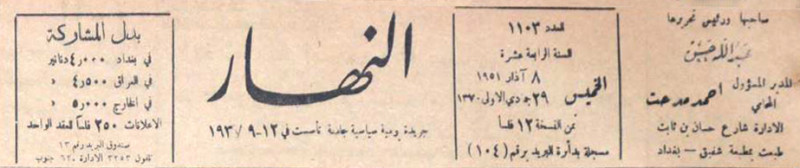 صاحبها ورئيس تحريرها
عبدالله حسن
المدير المسؤول
المحامي
احمد مدحت
الادارة شارع حسان بن ثابت
طبعت بمطبعة شفيق - بغداد
العدد ١١٠٣
السنة الرابعة عشرة
الخميس
٨ آذار ١٩٥١
٢٩ جمادي الاولى ١٣٧٠
ثمن النسخة ١٢ فلساً
مسجلة بدأرة البريد برقم (١٠٤)
النهار
جريدة يومية سياسية جامعة تأسست في ١٢-٩-١٩٣٧
بدل المشاركة
في بغداد ٤٫٠٠٠ دنانير
في العراق ٤٫٥٠٠ »
في الخارج ٥٫٠٠٠ »
الاعلانات ٢٥٠ فلساً للعقد الواحد
صندوق البريد رقم ١٣
تلفون ٣٢٥٣ الادارة جنوب